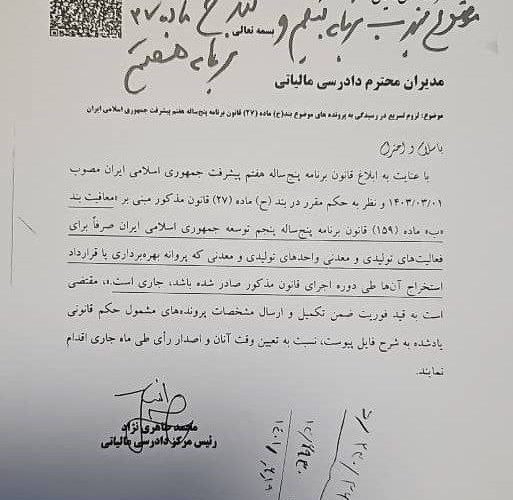 موضوع
برنامه
ماده ۲۷
بسمه تعالی
برنامه هفتم
مدیران محترم دادرسی مالیاتی
موضوع: لزوم تسریع در رسیدگی به پرونده های موضوع بند(ح) ماده (۲۷) قانون برنامه پنج‌ساله هفتم پیشرفت جمهوری اسلامی ایران
باسلام و احترام
با عنایت به ابلاغ قانون برنامه پنج‌ساله هفتم پیشرفت جمهوری اسلامی ایران مصوب
۱۴۰۳/۰۳/۰۱ و نظر به حکم مقرر در بند (ح) ماده (۲۷) قانون مذکور مبنی بر «معافیت بند
«ب» ماده (۱۵۹) قانون برنامه پنج‌ساله پنجم توسعه جمهوری اسلامی ایران صرفاً برای
فعالیت‌های تولیدی و معدنی واحدهای تولیدی و معدنی که پروانه بهره‌برداری یا قرارداد
استخراج آن‌ها طی دوره اجرای قانون مذکور صادر شده باشد، جاری است.»، مقتضی
است به قید فوریت ضمن تکمیل و ارسال مشخصات پرونده‌های مشمول حکم قانونی
یادشده به شرح فایل پیوست، نسبت به تعیین وقت آنان و اصدار رأی طی ماه جاری اقدام
نمایند.
محمد طاهری نژاد
رئیس مرکز دادرسی مالیاتی